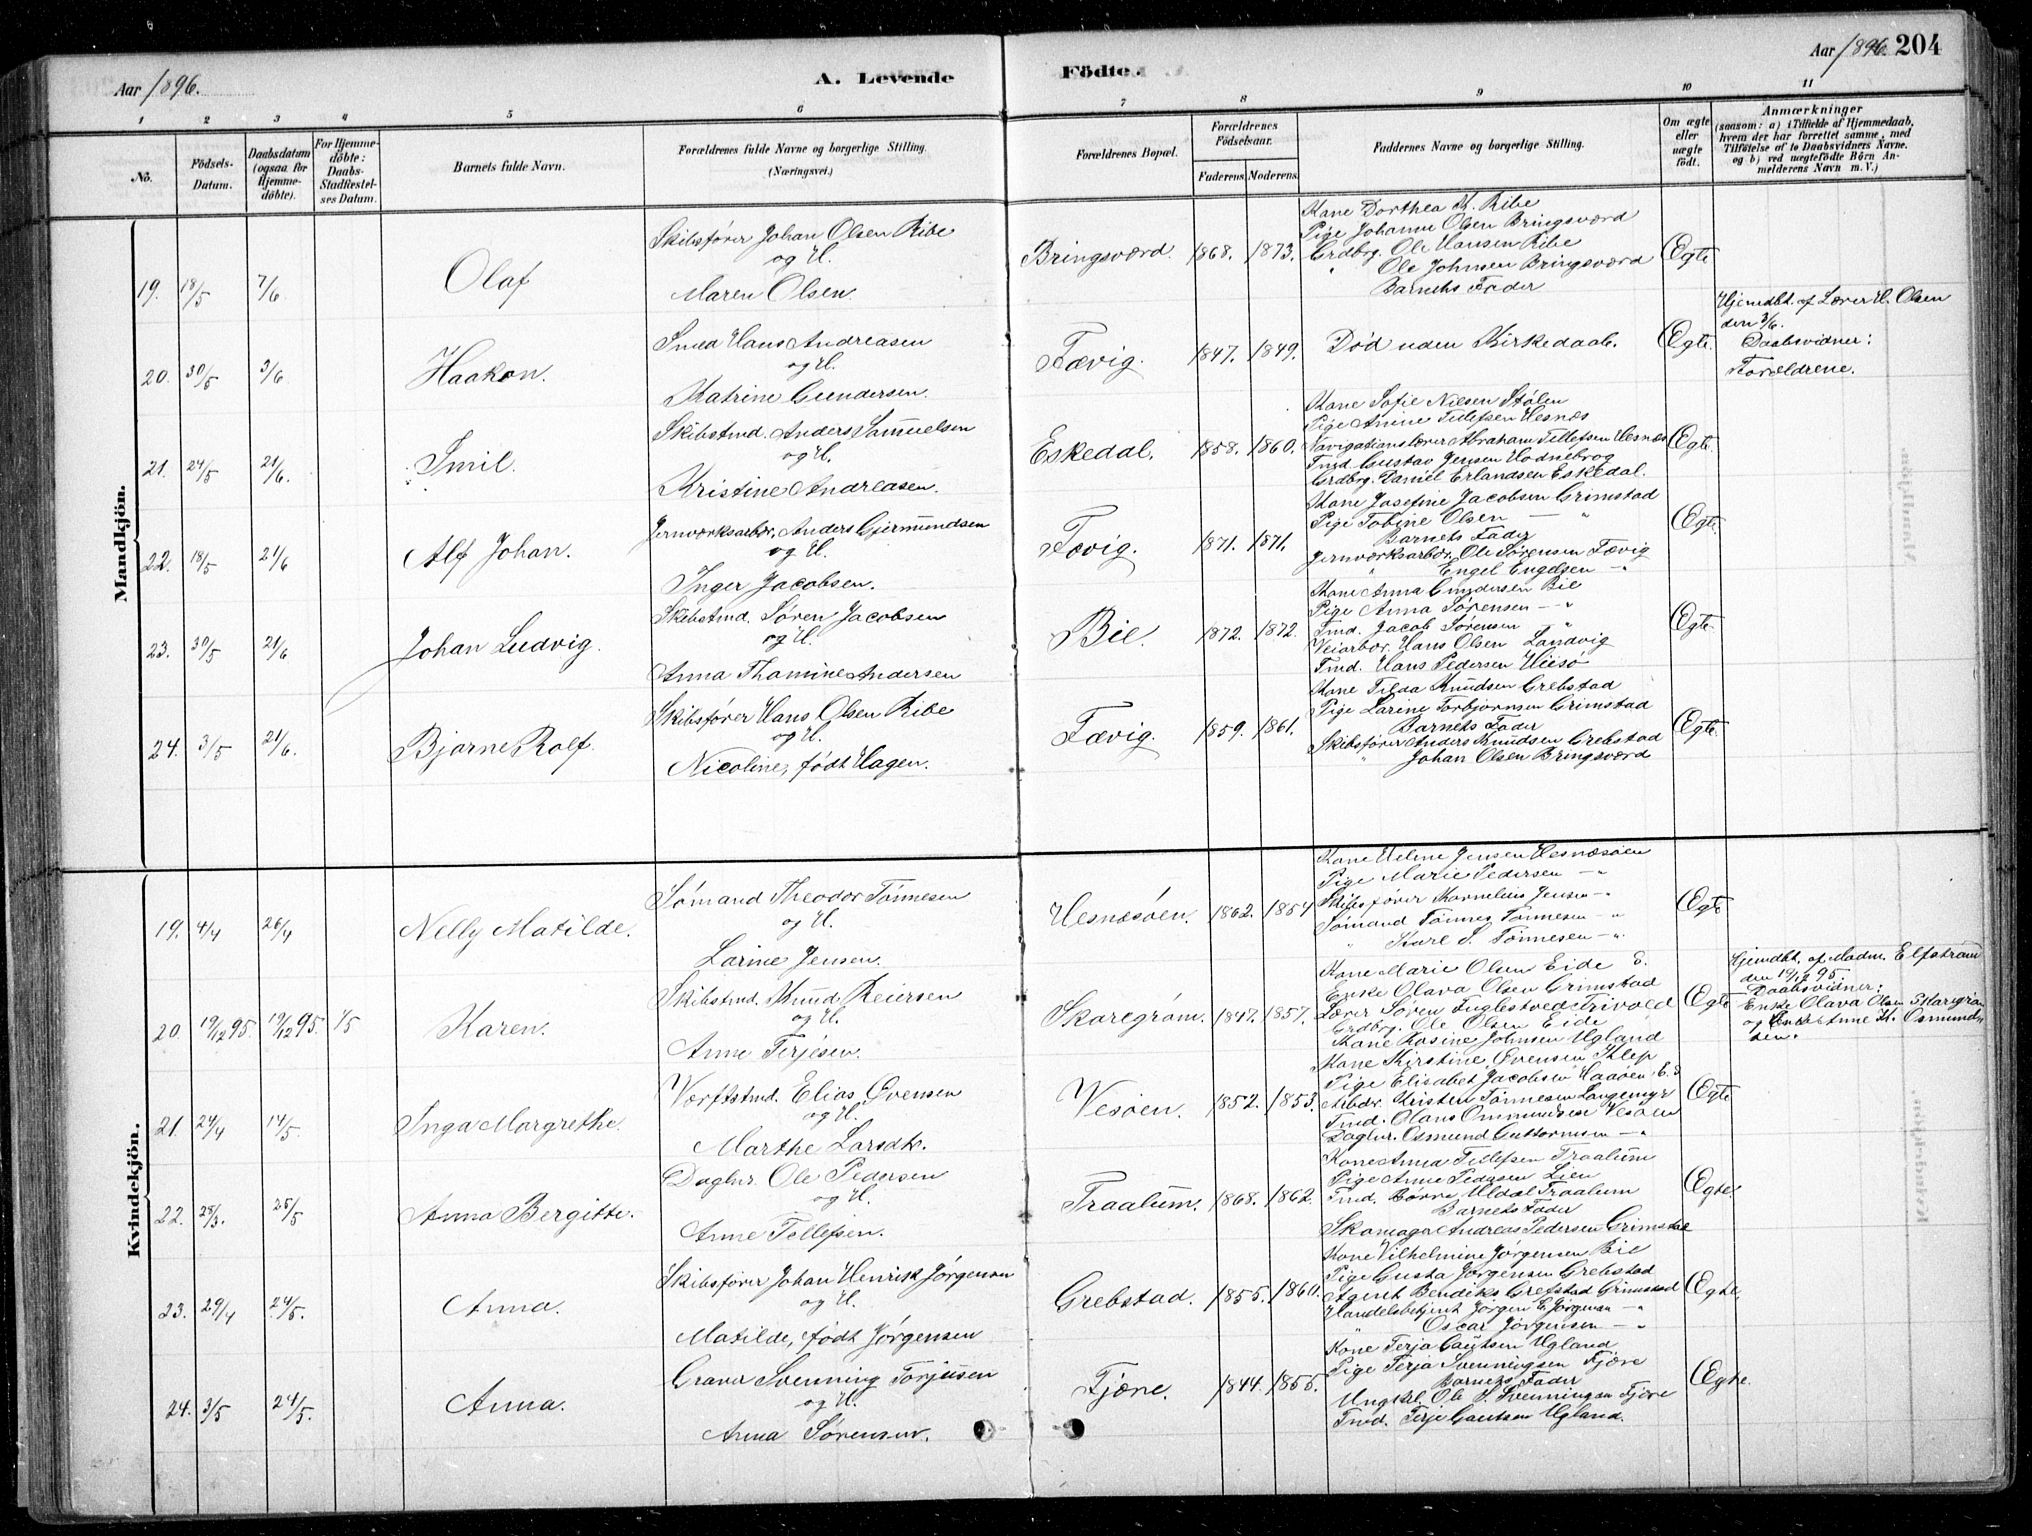 Aar 1896.
A. Levende Födte.
Aar 1896. 204
1 2 3 4 5 6 7 8 9 10 11
No.
Födsels-Datum.
Daabsdatum (ogsaa for Hjemme-döbte).
For Hjemme-döbte: Daabs-Stadfæstel-ses Datum.
Barnets fulde Navn.
Forældrenes fulde Navne og borgerlige Stilling.
(Næringsvei.)
Forældrenes Bopæl.
Forældrenes Födselsaar.
Faderens. Moderens.
Faddernes Navne og borgerlige Stilling.
Om ægte eller uægte födt.
Anmærkninger
(saasom: a) i Tilfælde af Hjemmedaab, hvem der har forrettet samme, med Tilföielse af to Daabsvidners Navne. og b) ved uægtefödte Börn An-melderens Navn m. V.)
Mandkjön.
19. 18/5 7/6 Olaf
Skibsfører Johan Olsen Ribe
og H.
Maren Olsen.
Bringsværd. 1868. 1873.
Kone Dorthea K. Ribe
Pige Johanne Olsen Bringsværd
Grdbrg. Ole Hansen Ribe
" Ole Johnsen Bringsværd
Barnets Fader
Ægte
20. 30/5 3/6 Haakon.
Smed Hans Andreasen
og H.
Katrine Gundersen.
Fævig. 1847. 1849.
Død uden Kirkedaab.
Ægte.
Hjemdbt. af Lærer H. Olsen
den 3/6.
Daabsvidner:
Forældrene.
21. 24/5 21/6 Emil.
Skibstmd. Anders Samuelsen
og H.
Kristine Andreasen.
Eskedal. 1858. 1860.
Kone Sofie Nilsen Stølen
Pige Amine Tellefsen Hesnæs
Navigationslærer Abraham Tellefsen Hesnæs
Tmd. Gustav Jensen Hodnebrog
Grdbrg. Daniel Erlandsen Eskedal.
Ægte.
22. 18/5 21/6 Alf Johan.
Jernværksarbdr. Anders Gjermundsen
og H.
Inger Jacobsen.
Fævig. 1871. 1871.
Kone Josefine Jacobsen Grimstad
Pige Tobine Olsen — "
Barnets Fader
Jernværksarbdr. Ole Sørensen Fævig
" Engel Engelsen — "
Ægte.
23. 30/5 21/6 Johan Ludvig.
Skibstmd. Søren Jacobsen
og H.
Anna Thomine Andersen
Bie. 1872. 1872.
Kone Anna Gundersen Bie
Pige Anna Sørensen — "
Tmd. Jacob Sørensen "
Veiarbdr. Hans Olsen Landvig
Tmd. Hans Pedersen Hiesø
Ægte.
24. 3/5 21/6. Bjarne Rolf.
Skibsfører Hans Olsen Ribe
og H.
Nicoline, født Hagen.
Fævig. 1859. 1861.
Kone Tilda Knudsen Grebstad
Pige Larene Torbjørnsen Grimstad
Barnets Fader
Skibsfører Anders Knudsen Grebstad
" Johan Olsen Bringsværd
Ægte.
Kvindekjön.
19. 4/4 26/4 Nelly Matilde.
Sømand Theodor Tønnesen
og H.
Larine Jensen.
Hesnæsøen. 1862. 1854
Kone Helene Jensen Hesnæsøen
Pige Marie Pedersen — "
Skibsfører Kornelius Jensen — "
Sømand Tønnes Tønnesen — "
" Karl S. Tønnesen — "
Ægte
20. 19/12 95. 19/12 95. 4/5 Karen.
Skibstmd. Knud Reiersen
og H.
Anne Terjesen.
Skaregrøm. 1847. 1857.
Kone Marie Olsen Eide E.
Enke Olava Olsen Grimstad
Lærer Søren Fuglestvedt Frivold
Grdbrg. Ole Olsen Eide
Kone Rosine Johnsen Ugland
Ægte
Hjemdbt. af Madm. Elfstrøm
den 19/12 95.
Daabsvidner:
Enke Olava Olsen Skaregrøm
og Enke Anne K. Osmund-
sen.
21. 24/4 14/5. Inga Margrethe.
Værftstmd. Elias Evensen
og H.
Marthe Larsdtr.
Vesøen. 1852. 1853.
Kone Kirstine Evensen Klep
Pige Elisabet Jacobsen Haaøen E. S
Arbdr. Kristen Tønnesen Langemyr
Tmd. Olaus Ommundsen Vesøen
Daglnr. Osmund Guttormsen — "
Ægte
22. 25/3. 25/5 Anna Bergitte.
Daglnr. Ole Pedersen
og H.
Anne Tellefsen.
Traalum. 1868. 1862.
Kone Anna Tellefsen Traalum
Pige Anne Pedersen Lien
Tmd. Børre Uldal Traalum
Barnets Fader
Skomager Andreas Pedersen Grimstad
Ægte.
23. 29/4 24/5. Anna.
Skibsfører Johan Henrik Jørgensen
og H.
Matilde, født Jørgensen
Grebstad. 1855. 1860.
Kone Vilhelmine Jørgensen Bie
Pige Gusta Jørgensen Grebstad
Agent Bendiks Grefstad Grimstad
Handelsbetjent Jørgen E. Jørgensen — "
" Oscar Jørgensen — "
Ægte.
24. 3/5 24/5. Anna.
Graver Svenning Torjusen
og H.
Anna Sørensen.
Fjære. 1844. 1855.
Kone Terja Gautsen Ugland
Pige Terja Svenningsen Fjære
Barnets Fader
Ungkl. Ole S. Svenningsen Fjære
Tmd. Terje Gautsen Ugland.
Ægte.